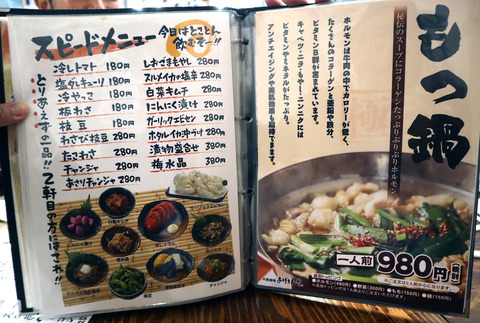 スピードメニュー
今日はとことん
飲むぞー!!
とりあえずの一品!!2軒目の方はこれ!!
冷しトマト 180円
塩ダレキューリ 180円
冷やっこ 180円
板わさ 180円
枝豆 180円
わさび枝豆 280円
たこわさ 280円
チャンジャ 280円
あさりチャンジャ 280円
しおさきもやし 280円
スルメイカの塩辛 280円
白菜キムチ 280円
にんにく漬け 280円
ガーリックエビセン 280円
ホタルイカ沖づけ 280円
漬物盛合せ 380円
梅水晶 380円
枝豆
チャンジャ
もつ鍋
秘伝のスープにコラーゲンたっぷりぷりぷりホルモン
ホルモンは牛肉の中でカロリーが低く、
たくさんのコラーゲンと亜鉛や鉄分、
ビタミンB群が含まれています。
キャベツ・ニラ・もやし・ニンニクには
ビタミンやミネラルがたっぷり。
アンチエイジングや美肌効果も期待できます。
一人前 980円(税別)
注文は2人前からになります。
●ホルモン(480円) ●野菜(350円) ●もち(150円) ●麺(150円)